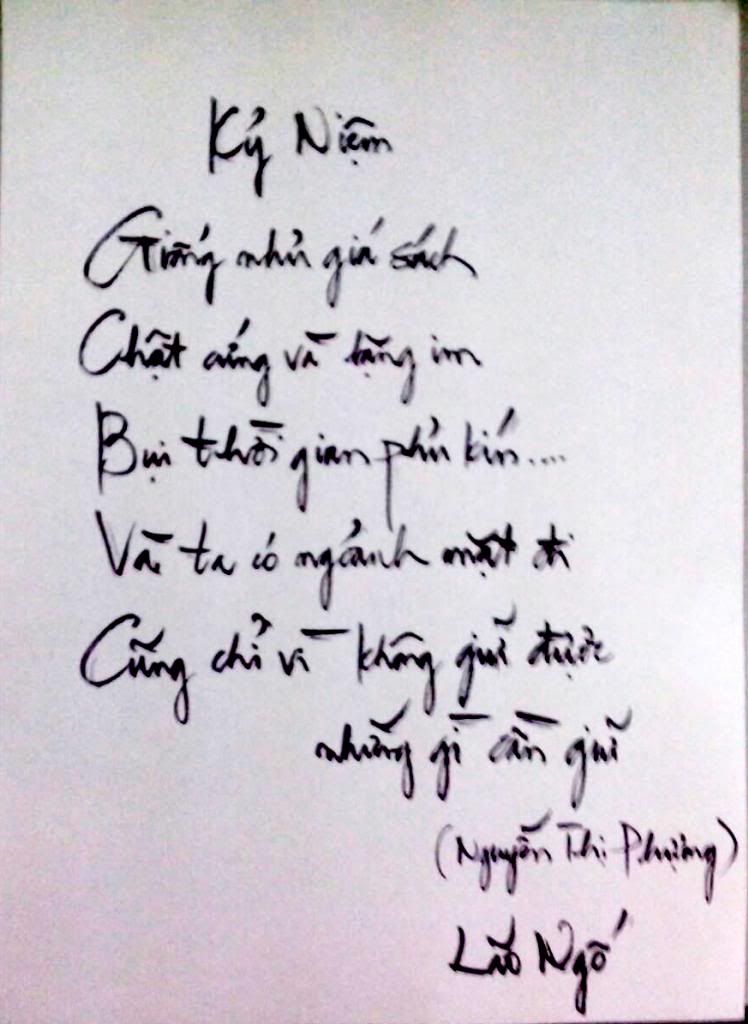 Kỷ Niệm
Giống như giá sách
Chật cứng và lặng im
Bụi thời gian phủ kín....
Và ta có ngoảnh mặt đi
Cũng chỉ vì không giữ được
những gì cần giữ
(Nguyễn Thị Phượng)
Lão Ngố